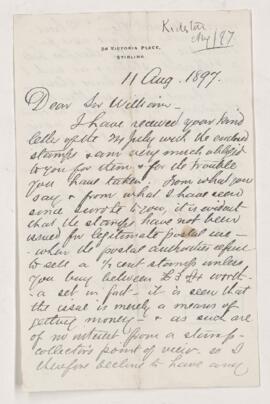 Kidston
Aug/97
24 VICTORIA PLACE,
STIRLING.
11 Aug. 1897.
Dear Sir William –
I have received your kind
letter of the July with the enclosed
stamps & am very much obliged
to you for them & for the trouble
you have taken. From what you
say & from what I have seen
since I wrote to you, it is evident
that the stamps have not been
issued for legitimate postal use –
when the postal authorities refuse
to sell a ½ cent stamp unless
you buy between £3 & 4 worth –
a set in fact – it is seen that
the issue is merely a means of
getting money – & as such are
of no interest from a stamp-
collector's point of view. so I
therefore decline to have any